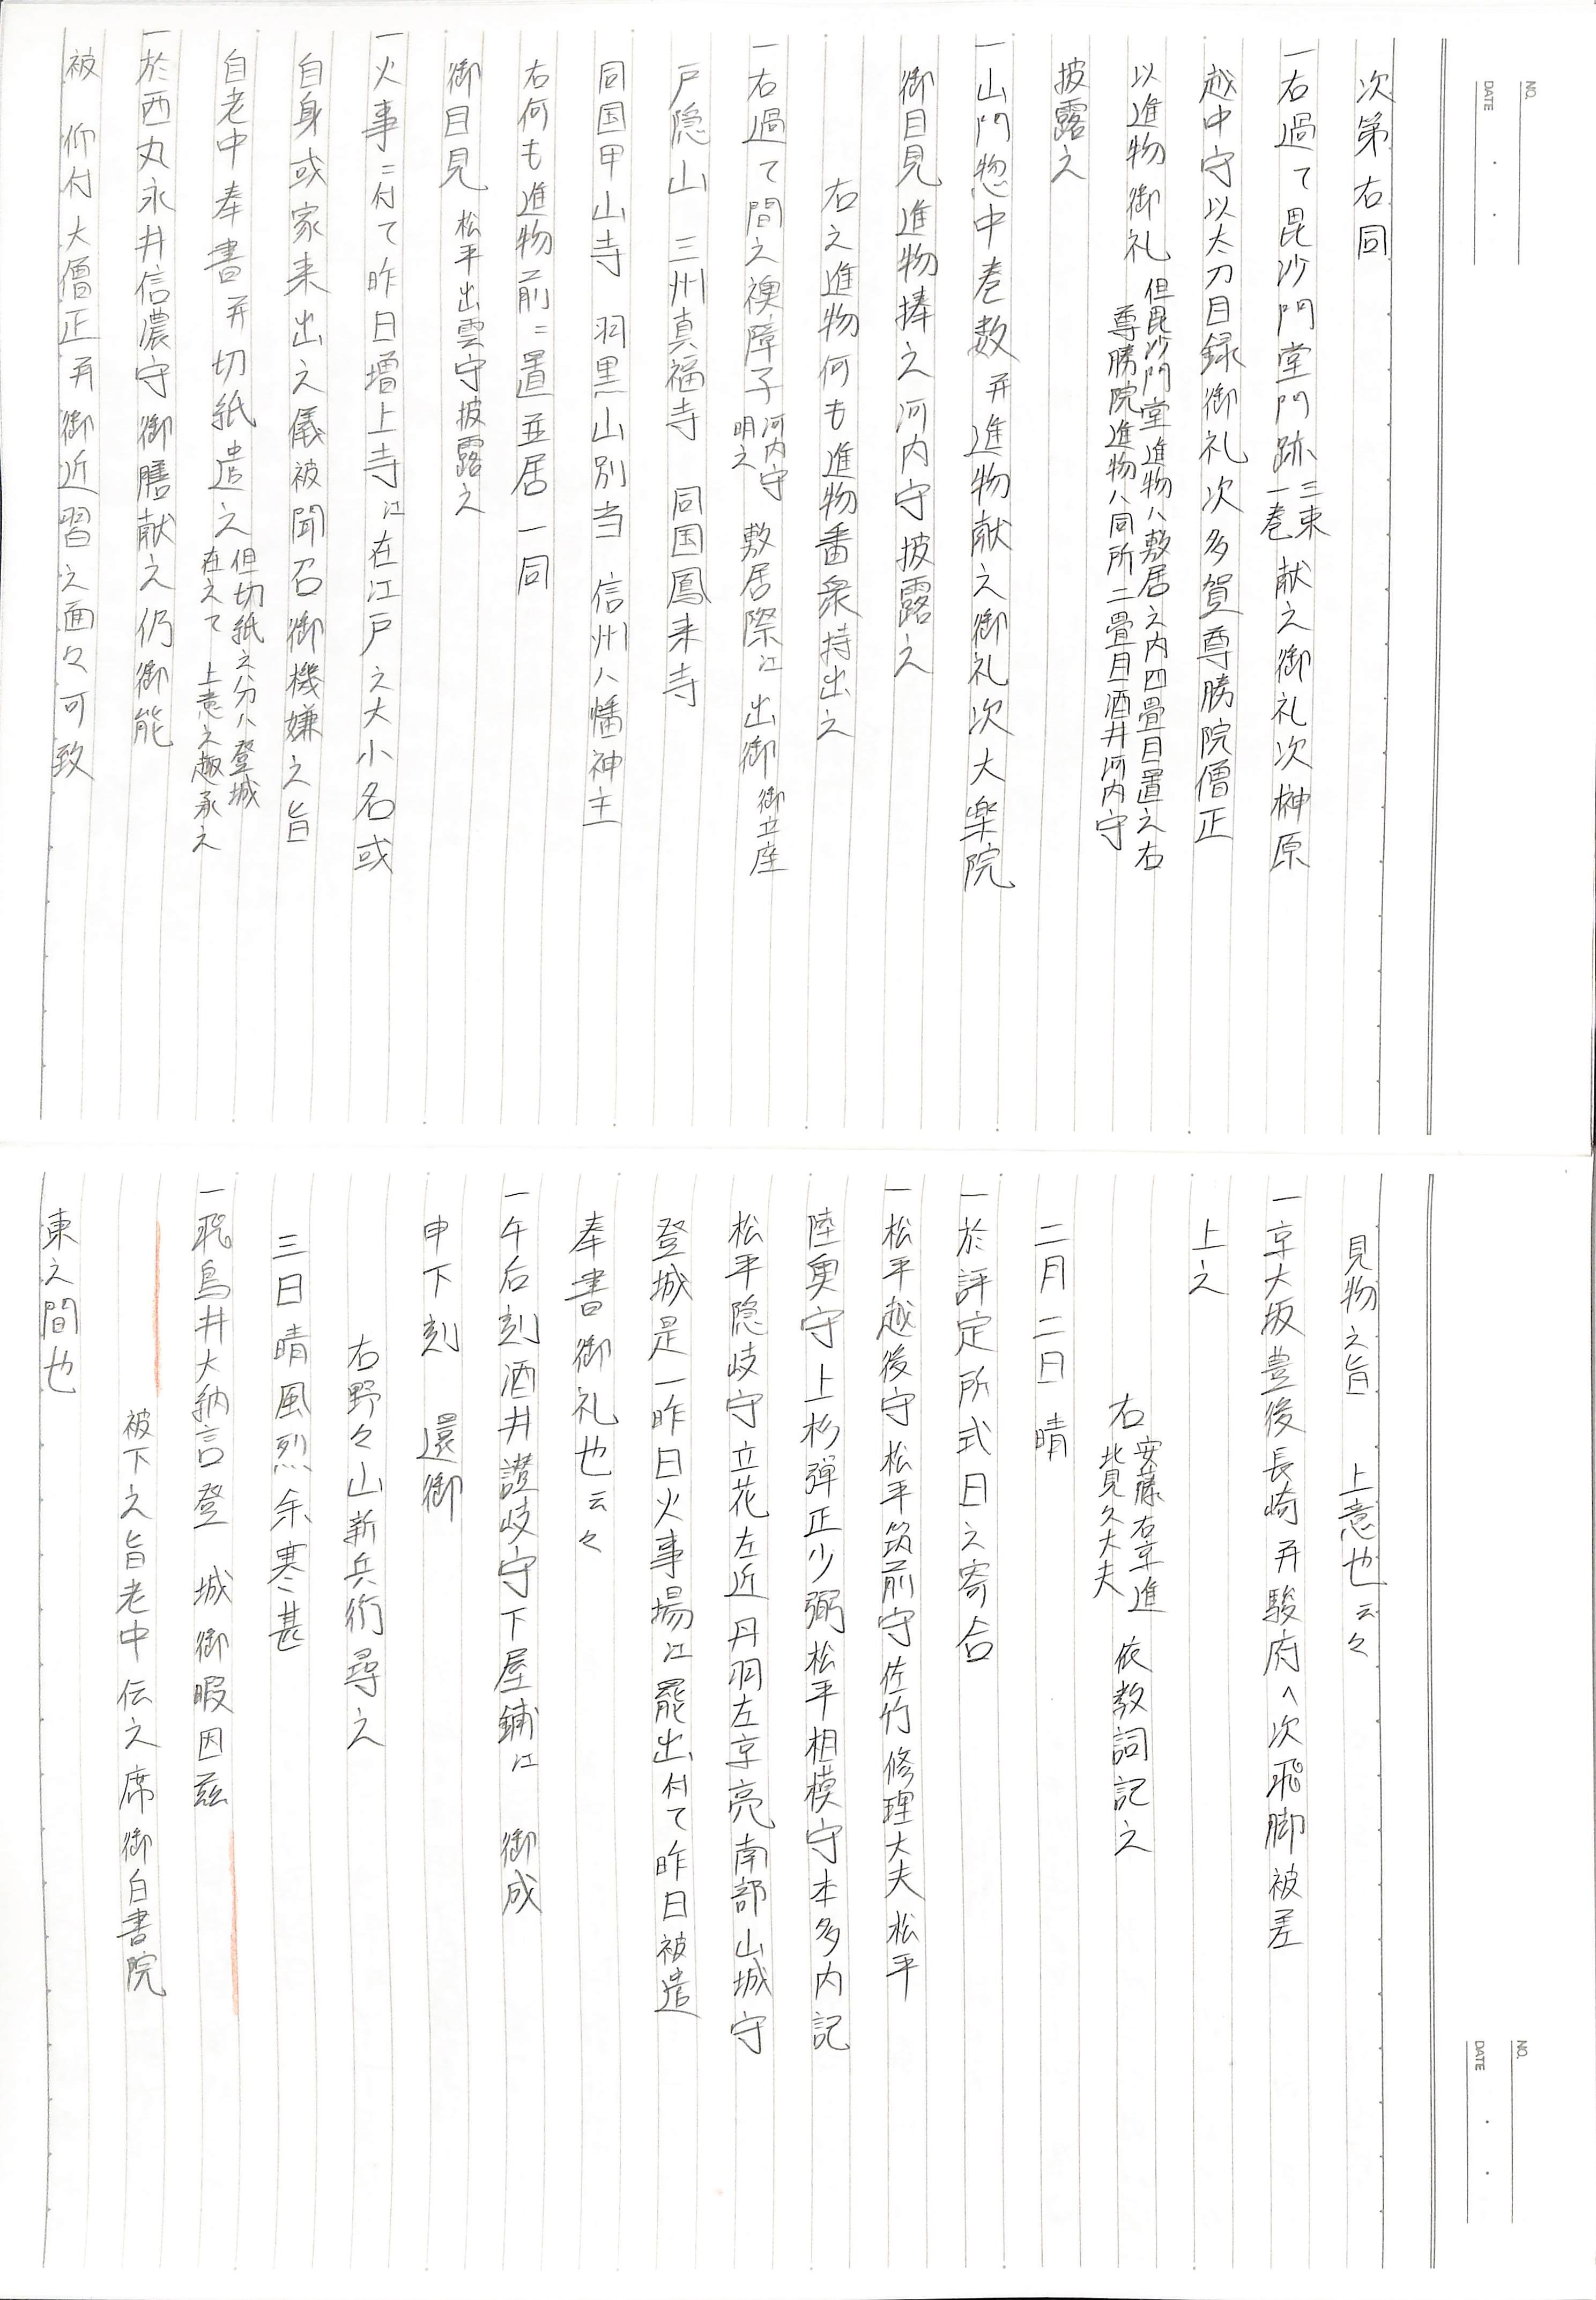 NO.
DATE
次第右同
一右過て毘沙門堂門跡三束一巻献之御礼次榊原
越中守以太刀目録御礼次多賀尊勝院僧正
以進物御礼但毘沙門堂進物ハ敷居之内四畳目置之右
尊勝院進物ハ同所二畳目酒井河内守
披露之
一山門惣中巻数并進物献之御礼次大楽院
御目見進物捧之河内守披露之
右之進物何も進物番衆持出之
一右過て間之襖障子河内守明之 敷居際江出御 御立座
戸隠山 三州真福寺 同国鳳来寺
同国甲山寺 羽黒山別当 信州八幡神主
右何も進物前ニ置並居一同
御目見 松平出雲守披露之
一火事ニ付て昨日増上寺江在江戸之大小名或
自身或家来出之儀被聞召御機嫌之旨
自老中奉書并切紙遣之但切紙之分ハ登城
在之て上意之趣承之
一於西丸永井信濃守御膳献之仍御能
被 仰付大僧正并御近習之面々可致
NO.
DATE
見物之旨 上意也云々
一京大坂豊後長崎并駿府へ次飛脚被差
上之
右安藤右京進
北見久大夫 依教詞記之
二月二日 晴
一於評定所式日之寄合
一松平越後守松平筑前守佐竹修理大夫松平
陸奥守上杉弾正少弼松平相模守本多内記
松平隠岐守立花左近丹羽左京亮南部山城守
登城是一昨日火事場江罷出付て昨日被遣
奉書御礼也云々
一午后刻酒井讃岐守下屋鋪江 御成
申下刻 還御
右野々山新兵衛尋之
三日晴風烈余寒甚
一飛鳥井大納言登 城御暇因茲
被下之旨老中伝之席御白書院
東之間也